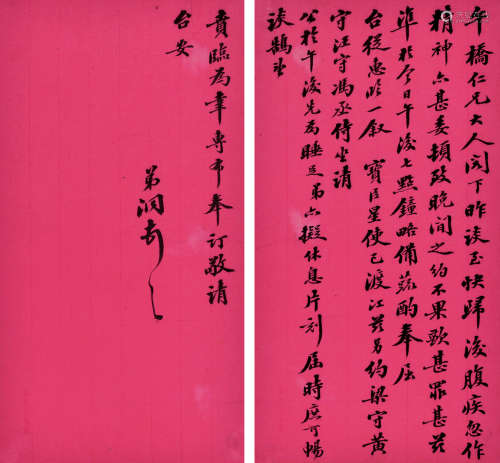 午橋仁兄大人閣下昨談至快歸後腹疾忽作
精神亦甚委頓致晚間之約不果歉甚罪甚茲
準於今日午後七點鐘略備蔬酌奉屈
台從惠臨一叙 寶臣星使已渡江茲另約梁守黃
守汪守馮丞侍坐請
公於午後先為睡足弟亦擬休息片刻屆時庶可暢
談鵠
賁臨為幸專布奉訂敬請
台安
弟洞